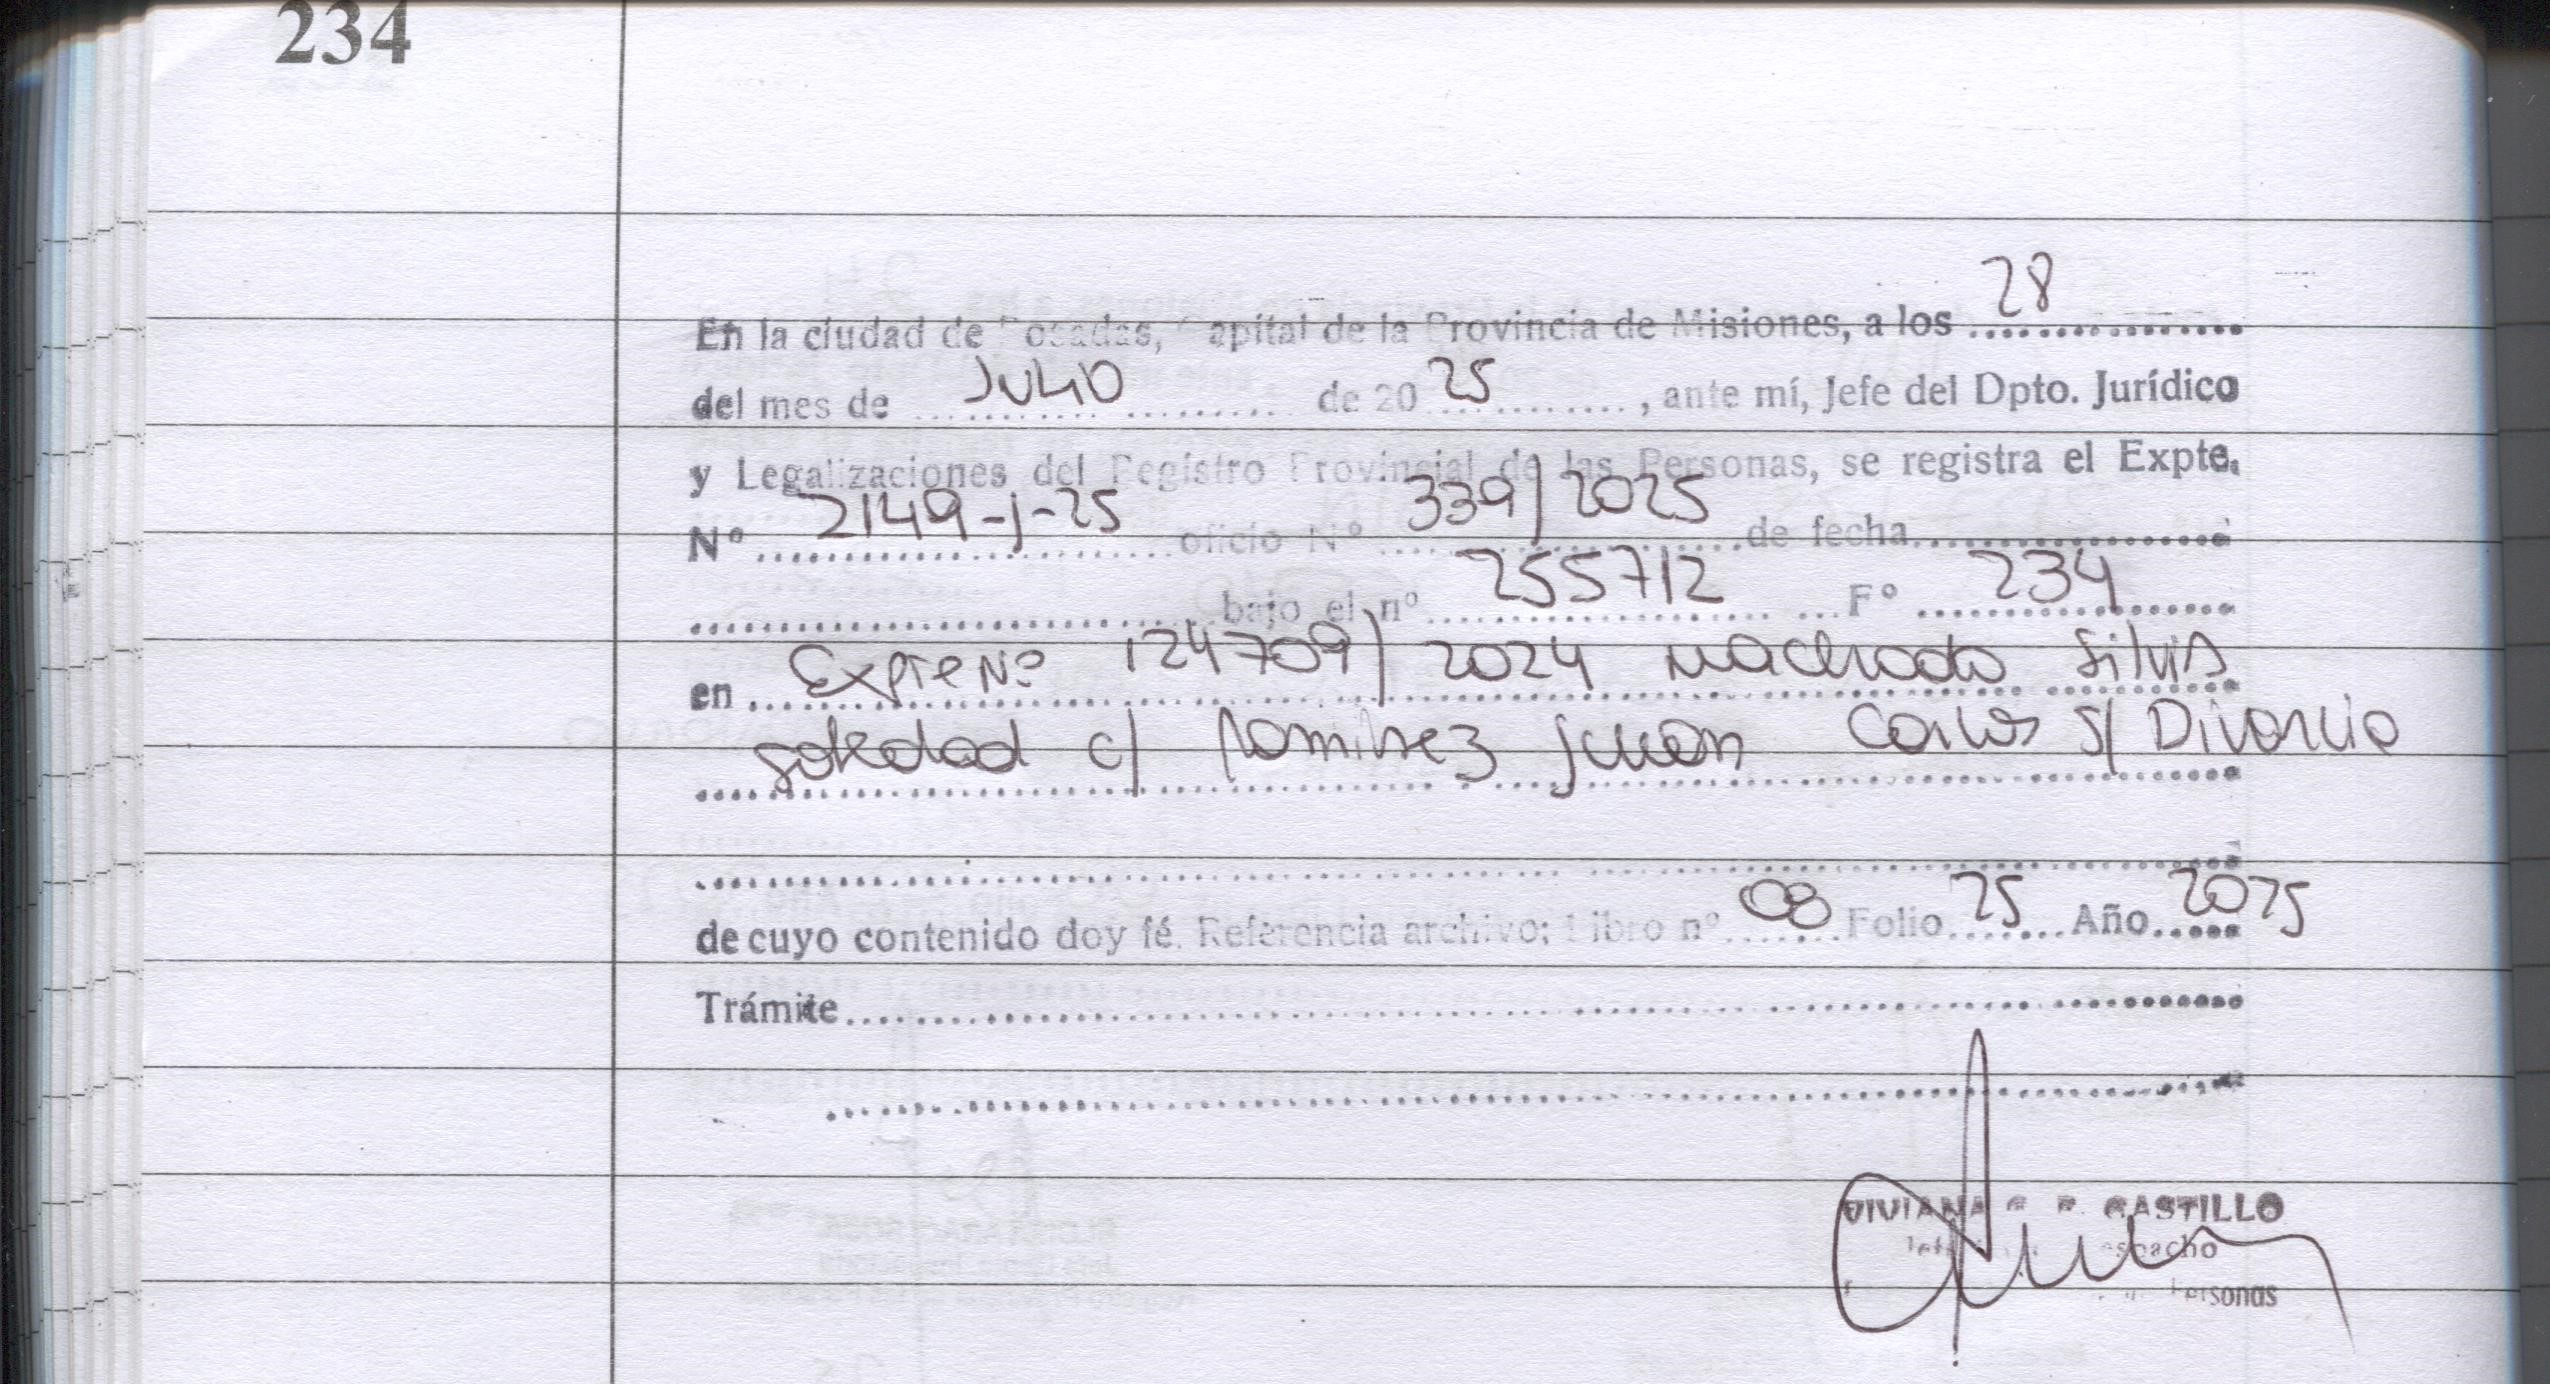 234
En la ciudad de Posadas, Capital de la Provincia de Misiones, a los 28
del mes de Julio de 20 25, ante mí, Jefe del Dpto. Jurídico
y Legalizaciones del Registro Provincial de las Personas, se registra el Expte.
Nº 2149-J-25 oficio Nº 339/2025 de fecha
bajo el nº 255712 Fº 234
en Expte Nº 124709/2024 Machado Silvia
Soledad c/ Ramirez Juan Carlos s/ Divorcio
de cuyo contenido doy fé. Referencia archivo: Libro nº 08 Folio 25 Año 2025
Trámite
VIVIANA CASTILLO
Despacho
Personas